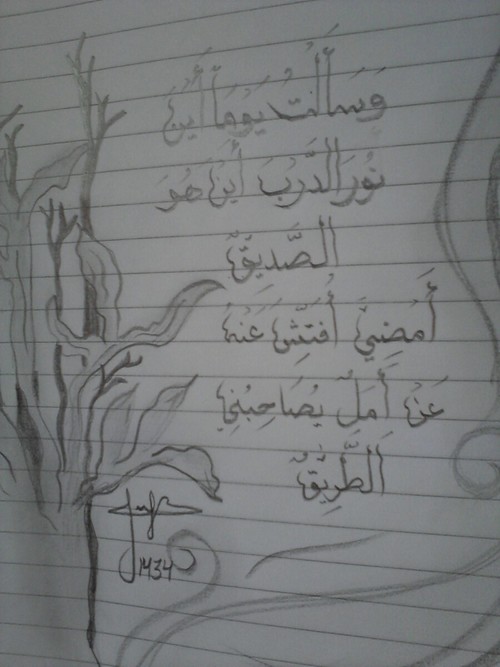 وَسَأَلْتُ يَوْمَاً أَيْنَ
نُورَ الدَّرْبَ أَيْنَ هُوَ
الصَّدِيقْ
أَمْضِيْ أُفَتِّشَ عَنْهُ
عَنْ أَمَلٍ يُصَاحِبُنِي
اَلطَّرِيقْ
1434